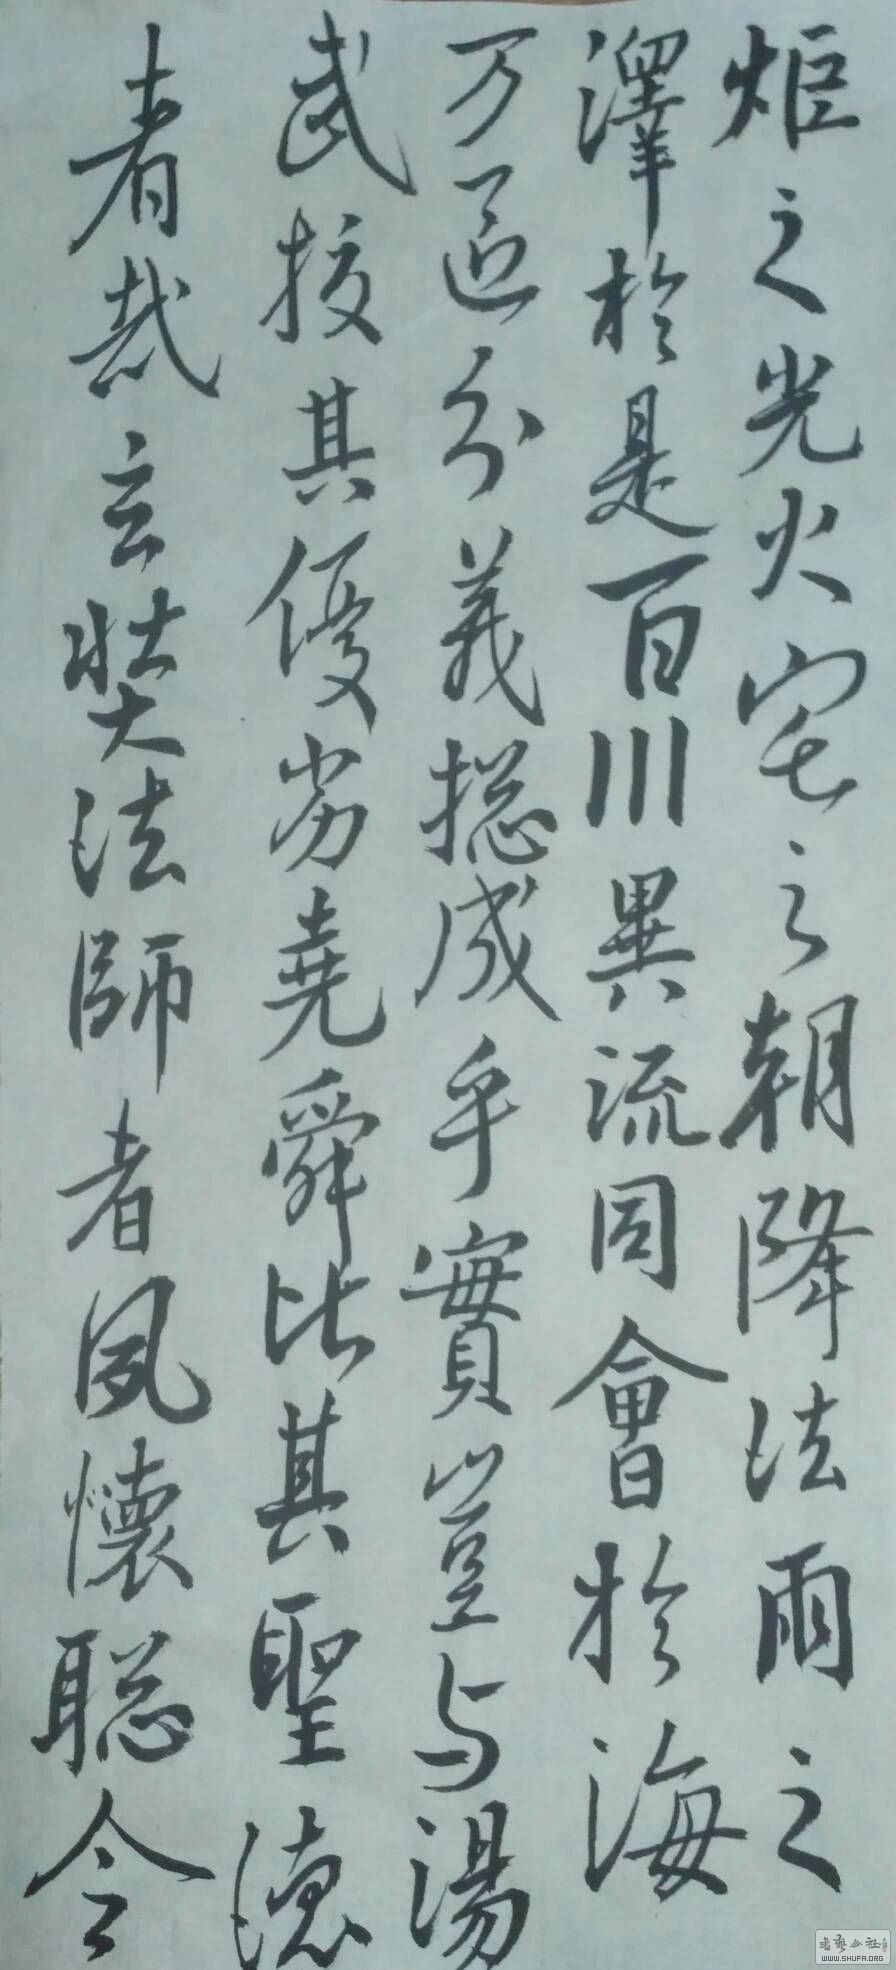 炬之光火宅之朝降法雨之
澤於是百川異流同會於海
万區分義揔成乎實豈与湯
武挍其優劣堯舜比其聖德
者哉玄奘法師者夙懷聡令
书艺公社
WWW.SHUFA.ORG